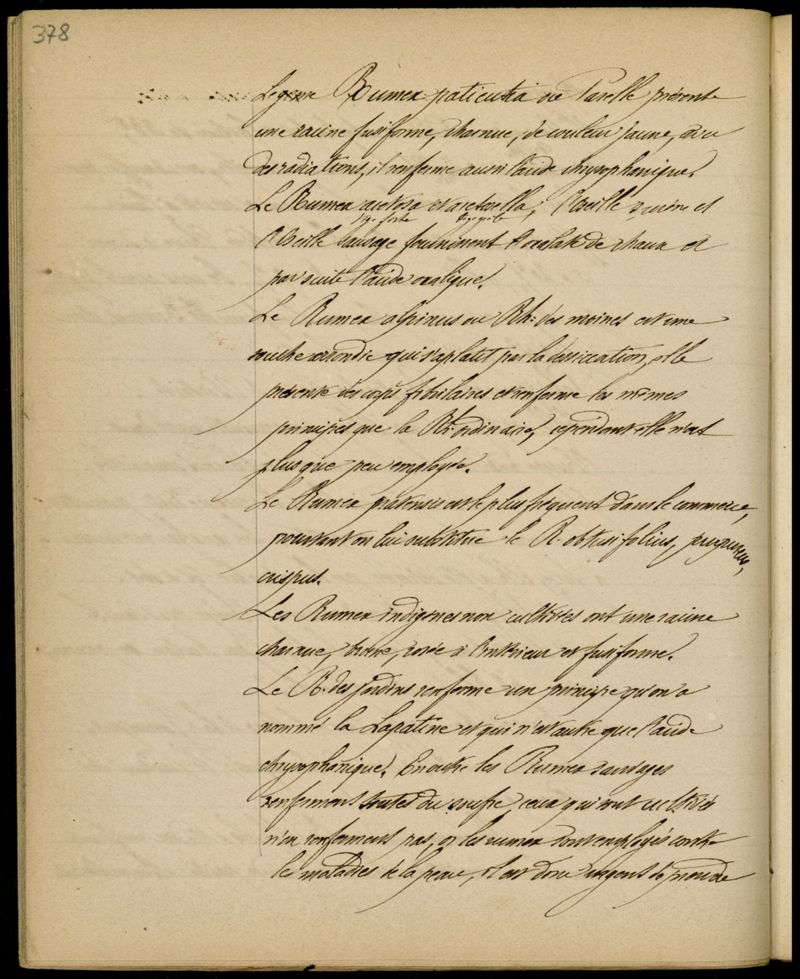 378
Le genre Rumex patientia ou Parelle présente
une racine fusiforme, charnue, de couleur jaune, avec
des radiations, il renferme aussi l'acide chrysophanique.
Le Rumex acetosa et acetosella, l'oseille surine et
tige forte
l'oseille sauvage fournissent l'oxalate de chaux et
par suite l'acide oxalique.
Le Rumex alpinus ou Rh: des moines est une
souche arrondie qui s'aplatit par la dessiccation, elle
présente des corps fibrillaires et renferme les mêmes
principes que la Rh: ordinaire, cependant elle n'est
plus que peu employée.
Le Rumex pratensis est le plus fréquent dans le commerce,
pourtant on lui substitue le R. obtusifolius, purpureus,
crispus.
Les Rumex indigènes non cultivés ont une racine
charnue, brune, rosée à l'intérieur et fusiforme.
Le R. des jardins renferme un principe qu'on a
nommé la Lapatine et qui n'est autre que l'acide
chrysophanique. En outre les Rumex sauvages
renferment toutes du soufre, ceux qui sont cultivés
n'en renferment pas, or les rumex sont employés contre
les maladies de la peau, il est donc urgent de prendre